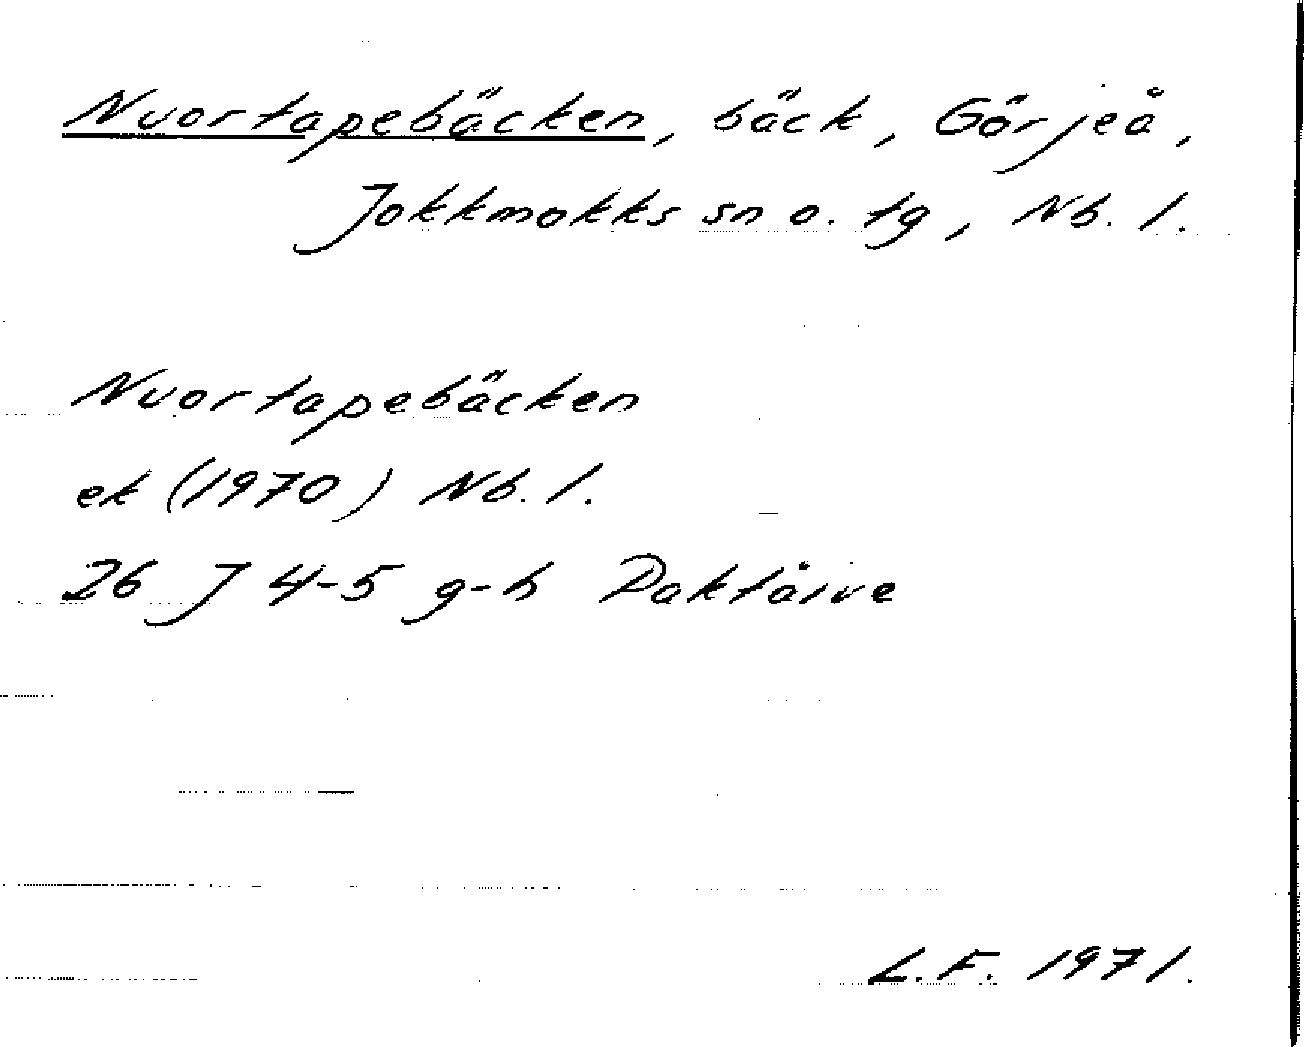 Nuortapebäcken, bäck, Görjeå,
Jokkmokks sn o. tg, Nb. l.
Nuortapebäcken
ek (1970) Nb. l.
26 J 4-5 g-h Daktåive
L.F. 1971.